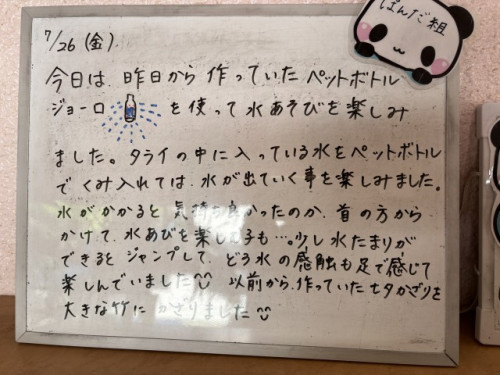 ぱんだ組
7/26 (金)
今日は、昨日から作っていたペットボトル
ジョーロ を使って水あそびを楽しみ
ました。タライの中に入っている水をペットボトル
でくみ入れては、水が出ていく事を楽しみました。
水がかかると気持ち良かったのか、首の方から
かけて、水あびを楽しむ子も…。少し水たまりが
できるとジャンプして、どろ水の感触も足で感じて
楽しんでいました 以前から、作っていた七夕かざりを
大きな竹にかざりました